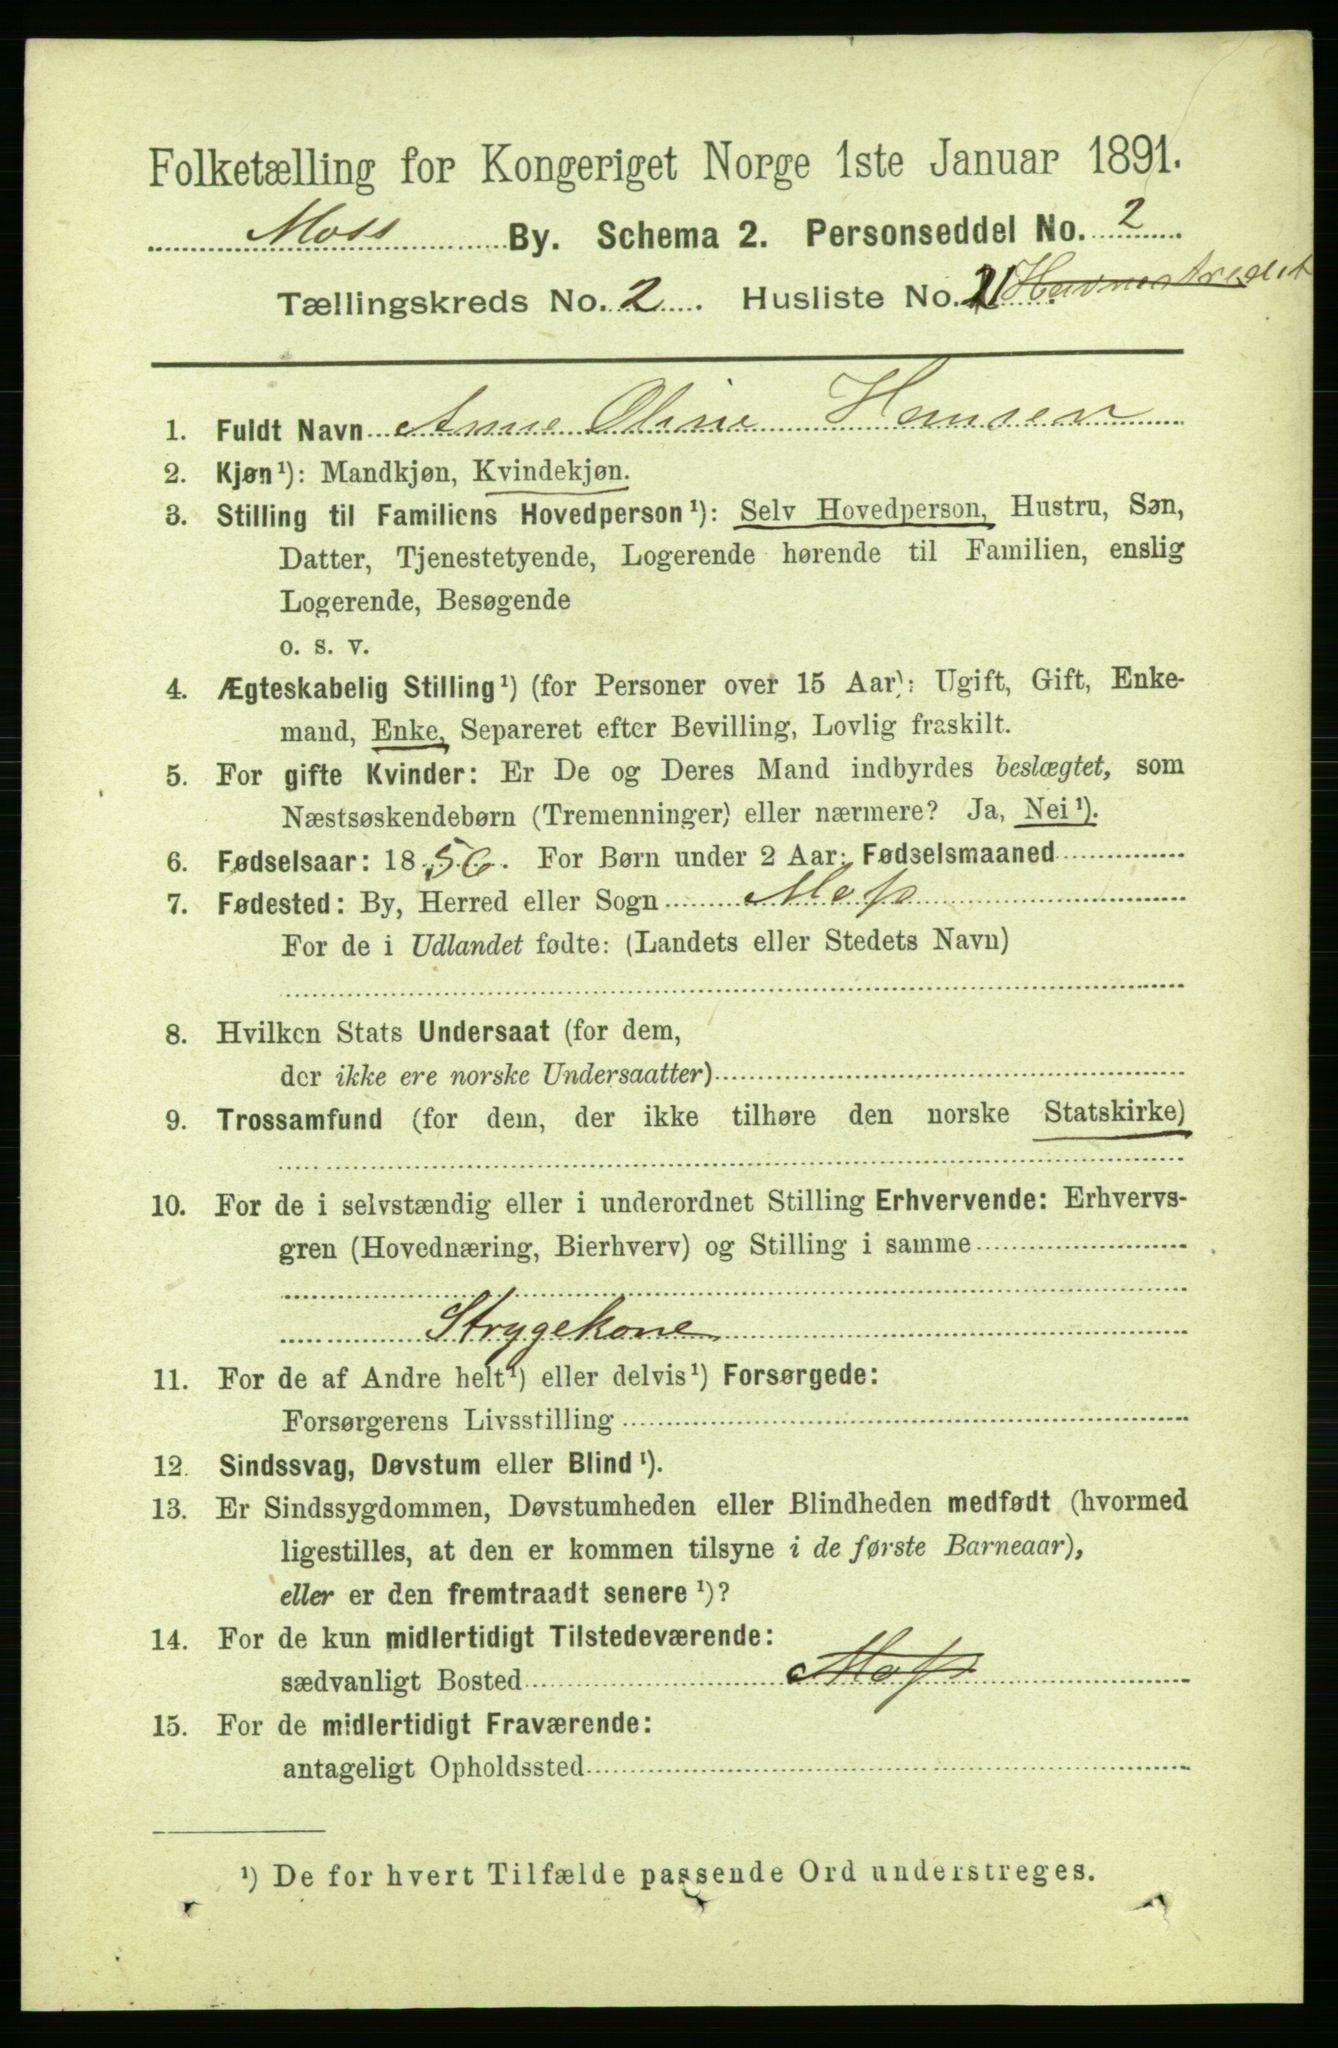 Folketælling for Kongeriget Norge 1ste Januar 1891.
Moss By. Schema 2. Personseddel No. 2
Tællingskreds No. 2. Husliste No. 21
1. Fuldt Navn Anne Oline Hansen
2. Kjøn¹): Mandkjøn, Kvindekjøn.
3. Stilling til Familiens Hovedperson¹): Selv Hovedperson, Hustru, Søn,
Datter, Tjenestetyende, Logerende hørende til Familien, enslig
Logerende, Besøgende
o. s. v.
4. Ægteskabelig Stilling¹) (for Personer over 15 Aar): Ugift, Gift, Enke-
mand, Enke, Separeret efter Bevilling, Lovlig fraskilt.
5. For gifte Kvinder: Er De og Deres Mand indbyrdes beslægtet, som
Næstsøskendebørn (Tremenninger) eller nærmere? Ja, Nei¹).
6. Fødselsaar: 1856. For Børn under 2 Aar: Fødselsmaaned
7. Fødested: By, Herred eller Sogn Moss
For de i Udlandet fødte: (Landets eller Stedets Navn)
8. Hvilken Stats Undersaat (for dem,
der ikke ere norske Undersaatter)
9. Trossamfund (for dem, der ikke tilhøre den norske Statskirke)
10. For de i selvstændig eller i underordnet Stilling Erhvervende: Erhvervs-
gren (Hovednæring, Bierhverv) og Stilling i samme
Strygekone
11. For de af Andre helt¹) eller delvis¹) Forsørgede:
Forsørgerens Livsstilling
12. Sindssvag, Døvstum eller Blind¹).
13. Er Sindssygdommen, Døvstumheden eller Blindheden medfødt (hvormed
ligestilles, at den er kommen tilsyne i de første Barneaar),
eller er den fremtraadt senere¹)?
14. For de kun midlertidigt Tilstedeværende:
sædvanligt Bosted Moss
15. For de midlertidigt Fraværende:
antageligt Opholdssted
¹) De for hvert Tilfælde passende Ord understreges.